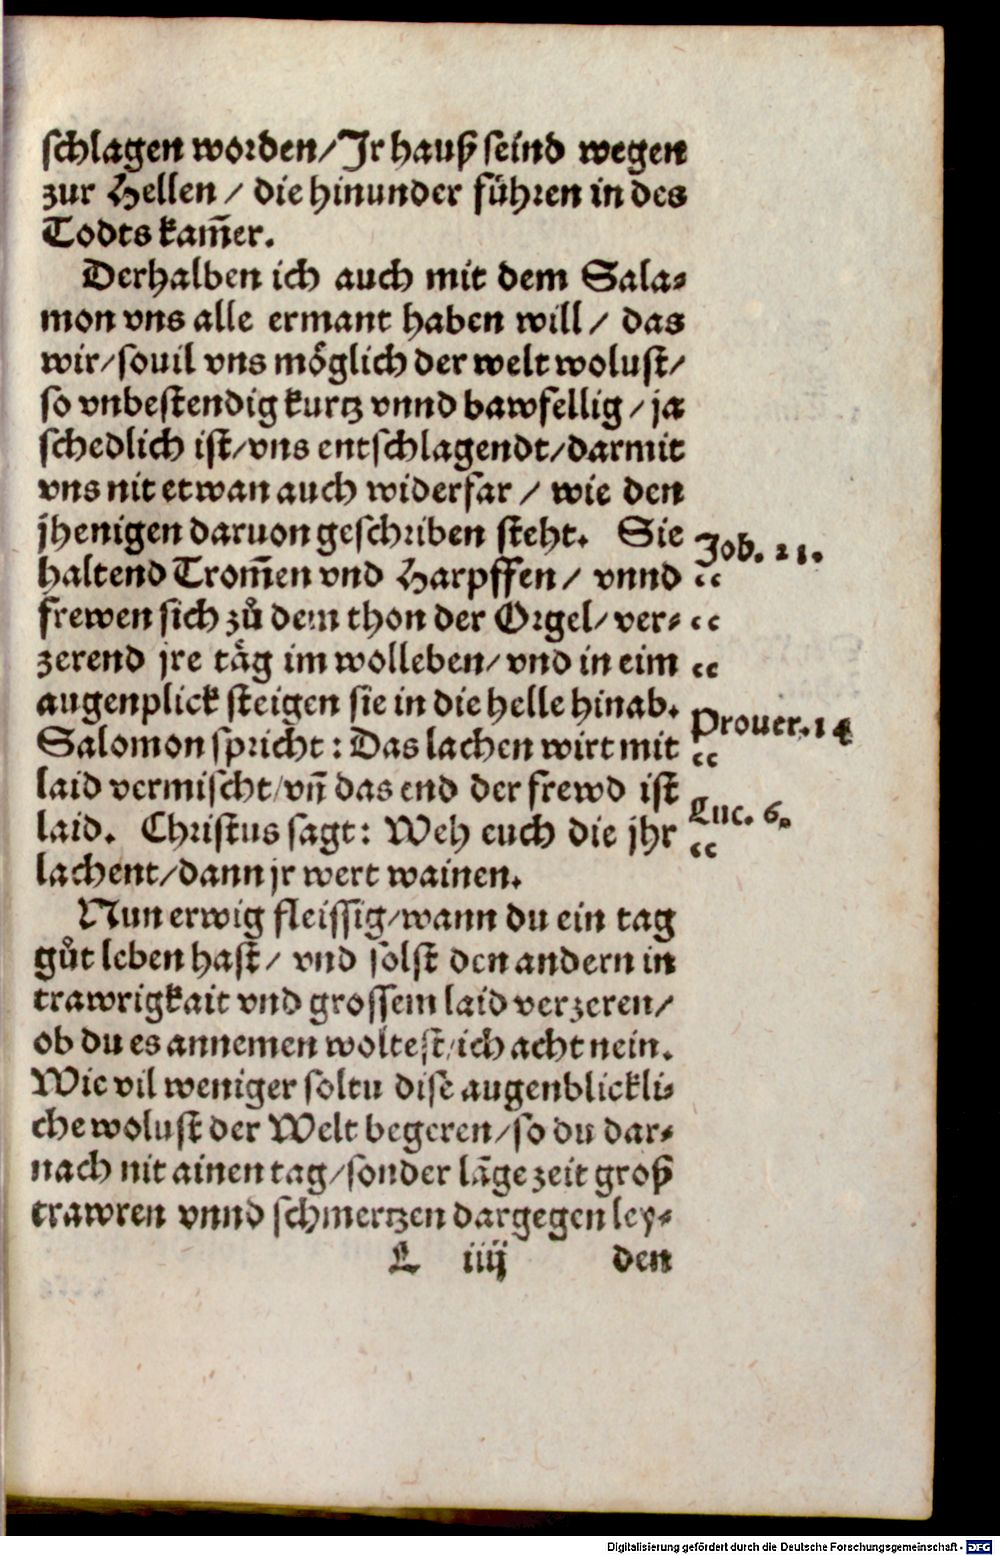 schlagen worden/Jr hauß seind wegen
zur Hellen / die hinunder führen in des
Todts kam̃er.
Derhalben ich auch mit dem Sala⸗
mon vns alle ermant haben will / das
wir/souil vns möglich der welt wolust/
so vnbestendig kurtz vnnd bawfellig / ja
schedlich ist/vns entschlagendt/darmit
vns nit etwan auch widerfar / wie den
jhenigen daruon geschriben steht. Sie
Job. 21.
haltend Trom̃en vnd Harpffen / vnnd
frewen sich zů dem thon der Orgel/ ver⸗
zerend jre täg im wolleben/ vnd in eim
augenplick steigen sie in die helle hinab.
Prouer. 14
Salomon spricht : Das lachen wirt mit
laid vermischt/vñ das end der frewd ist
Luc. 6.
laid. Christus sagt: Weh euch die jhr
lachent/dann jr wert wainen.
Nun erwig fleissig/wann du ein tag
gůt leben hast/ vnd solst den andern in
trawrigkait vnd grossem laid verzeren/
ob du es annemen woltest/ich acht nein.
Wie vil weniger soltu dise augenblickli⸗
che wolust der Welt begeren/so du dar⸗
nach nit ainen tag/sonder lãge zeit groß
trawren vnnd schmertzen dargegen ley⸗
L iiij den
Digitalisierung gefördert durch die Deutsche Forschungsgemeinschaft - DFG